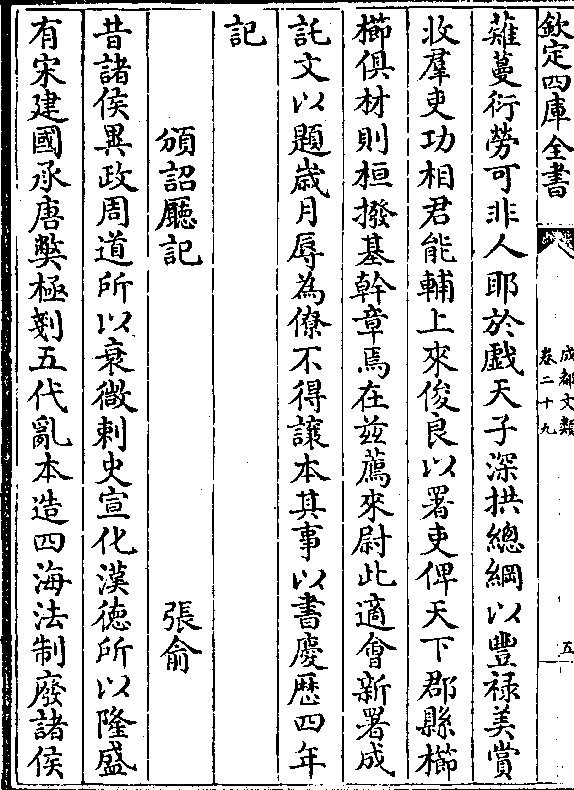 欽定四庫全書
成都文類
卷二十九
五
薙蔓衍勞可非人耶於戲天子深拱總綱以豐祿美賞
收羣吏功相君能輔上來俊良以署吏俾天下郡縣櫛
櫛俱材則桓撥基幹章焉在兹薦來尉此適會新署成
託文以題歲月辱為僚不得讓本其事以書慶歷四年
記
頒詔廳記 張俞
昔諸侯異政周道所以衰微刺史宣化漢德所以隆盛
有宋建國承唐獘極剗五代亂本造四海法制廢諸侯